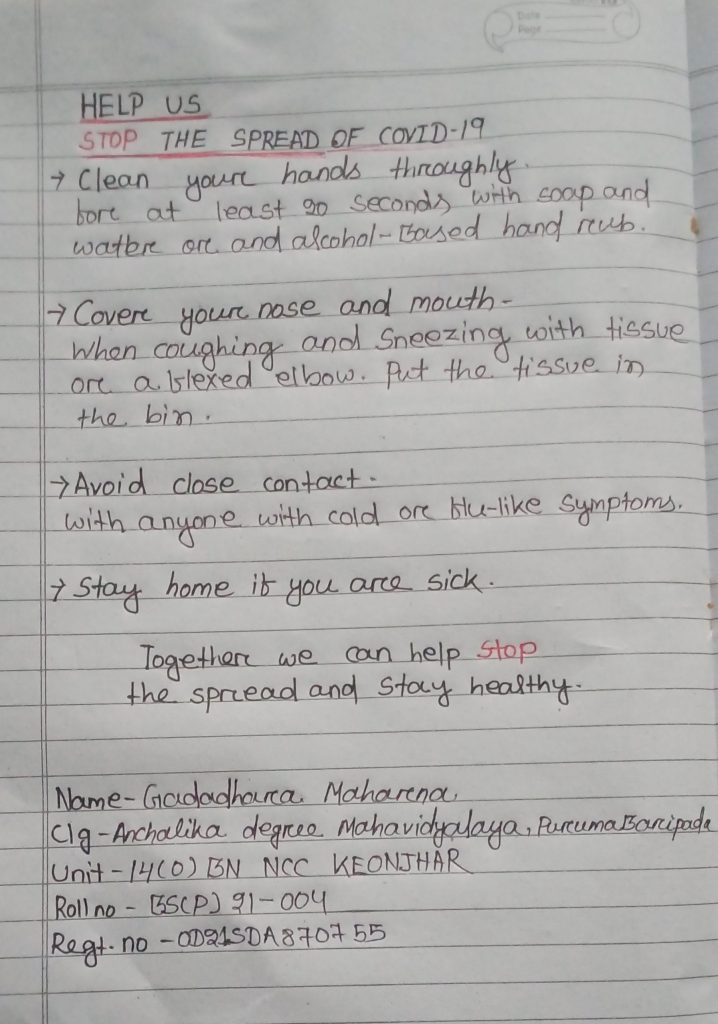 Date
Page
HELP US
STOP THE SPREAD OF COVID-19
→ Clean your hands throughly.
for at least 20 seconds with soap and
water or and alcohol-Based hand rub.
→ Cover your nose and mouth-
When coughing and sneezing with tissue
or a flexed elbow. Put the tissue in
the bin.
→ Avoid close contact.
with anyone with cold or flu-like symptoms.
→ Stay home if you are sick.
Together we can help stop
the spread and stay healthy.
Name- Gadadhara Maharana.
Clg- Anchalika degree Mahavidyalaya, PurunaBaripada
Unit - 14(O) BN NCC KEONJHAR
Roll no - BS(P) 21-004
Regt. no - OD21SDA870755